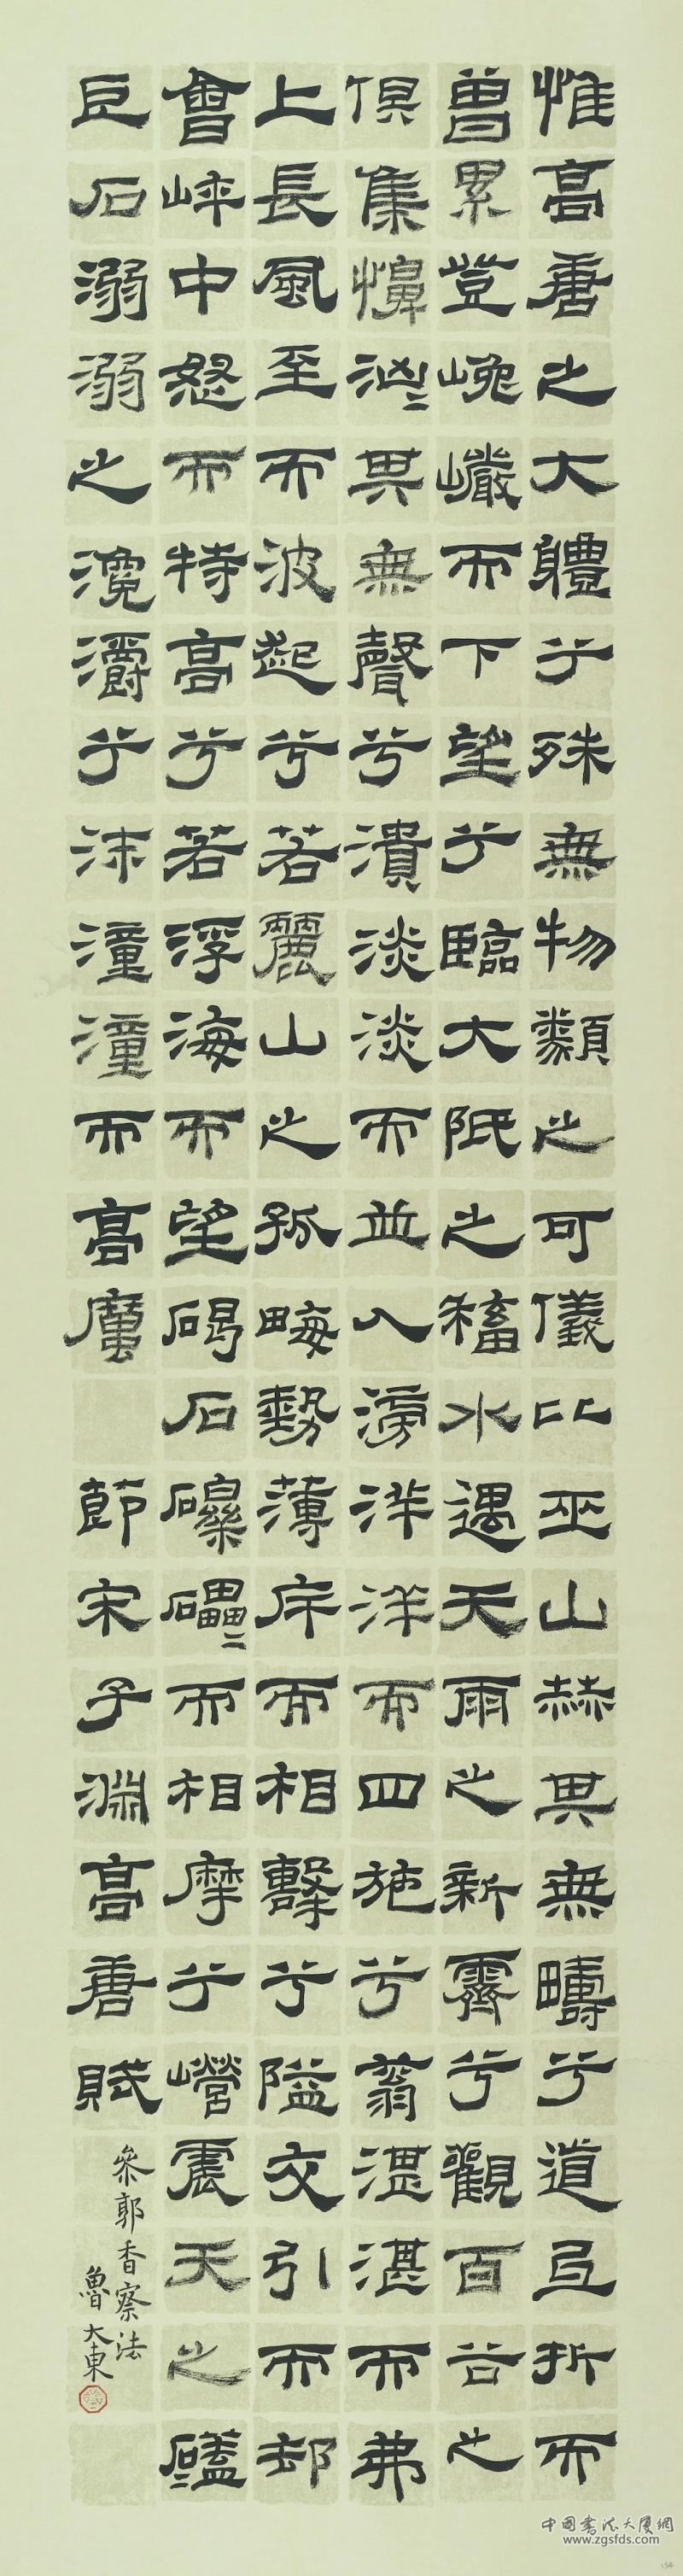 惟高唐之大體兮殊無物類之可儀比巫山赫其無疇兮道互折而
曾累登巉巖而下望兮臨大阺之稸水遇天雨之新霽兮觀百谷之
俱集濞洶〻其無聲兮潰淡淡而並入滂洋洋而四施兮蓊湛湛而弗
上長風至而波起兮若麗山之孤畮勢薄岸而相擊兮隘交引而却
會崪中怒而特高兮若浮海而望碣石礫磥〻而相摩兮巆震天之礚〻
巨石溺溺之瀺灂兮沫潼潼而高厲 節宋子淵高唐賦
參郭香察法
魯大東
中國書法大廈網
www.zgsfds.com